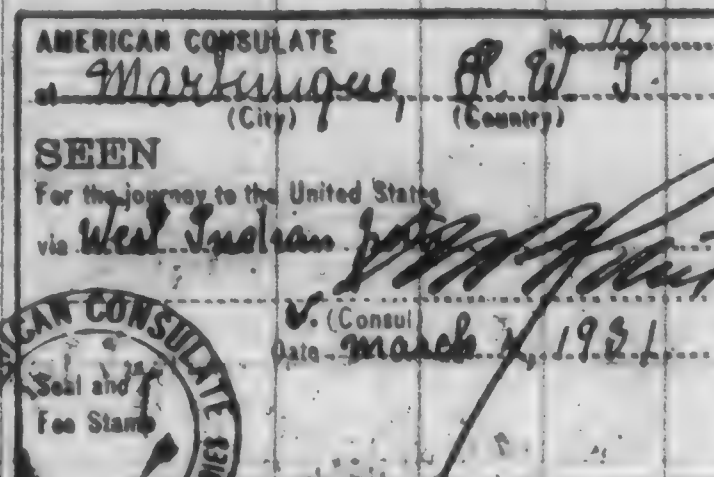 AMERICAN CONSULATE No. 113
at Martinique, F. W. I.
(City) (Country)
SEEN
For the journey to the United States
via West Indian
V. (Consul
Date March 1, 1931
AMERICAN CONSULATE
Seal and
Fee Stamp